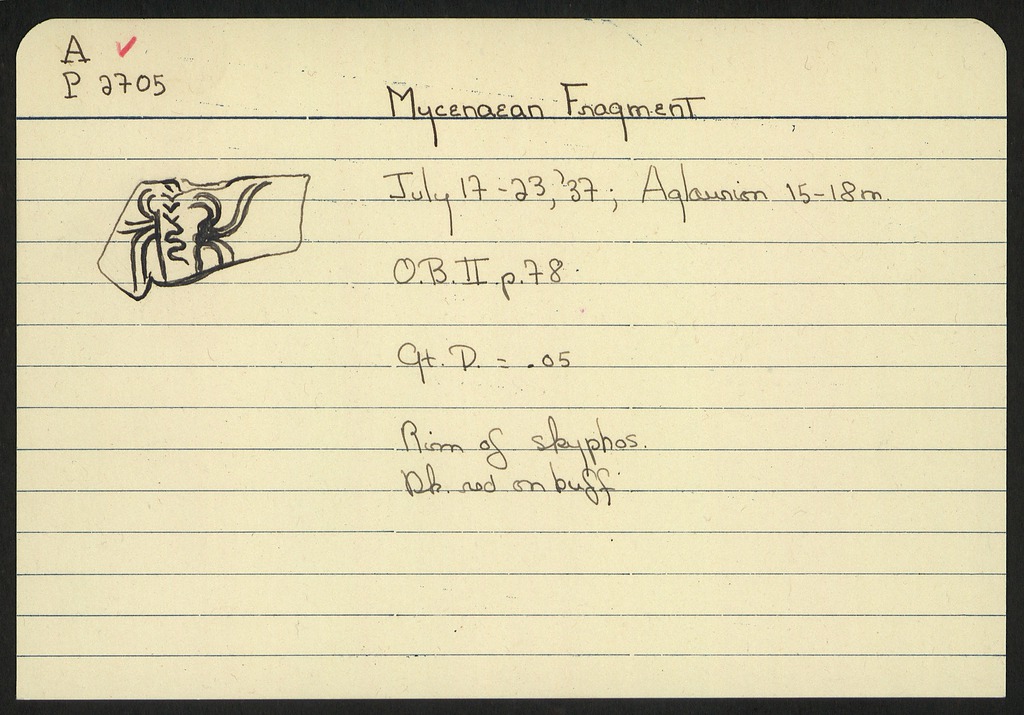 A ✓
P 2705
Mycenaean Fragment
July 17-23, '37; Aglaurion 15-18m.
O.B. II p.78.
Gt. D. = .05
Rim of skyphos.
Dk. red on buff